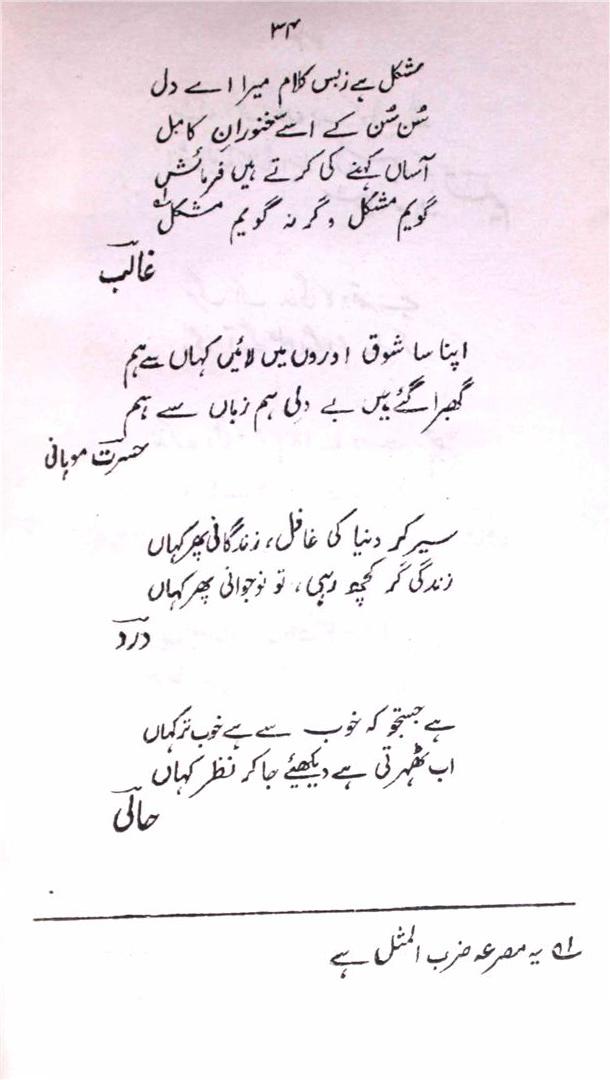 ۳۴
مشکل ہے زبس کلام میرا اے دل
سُن سُن کے اسے سخنورانِ کامل
آساں کہنے کی کرتے ہیں فرمائش
گویم مشکل وگر نہ گویم مشکل ؎۱
غالب
اپنا سا شوق اوروں میں لائیں کہاں سے ہم
گھبرا گئے ہیں بے دلیِ ہم زباں سے ہم
حسرت موہانی
سیر کر دنیا کی غافل، زندگانی پھر کہاں
زندگی گر کچھ رہی، تو نوجوانی پھر کہاں
درد
ہے جستجو کہ خوب سے ہے خوب تر کہاں
اب ٹھہرتی ہے دیکھئے جا کر نظر کہاں
حالی
؎۱ یہ مصرعہ ضرب المثل ہے